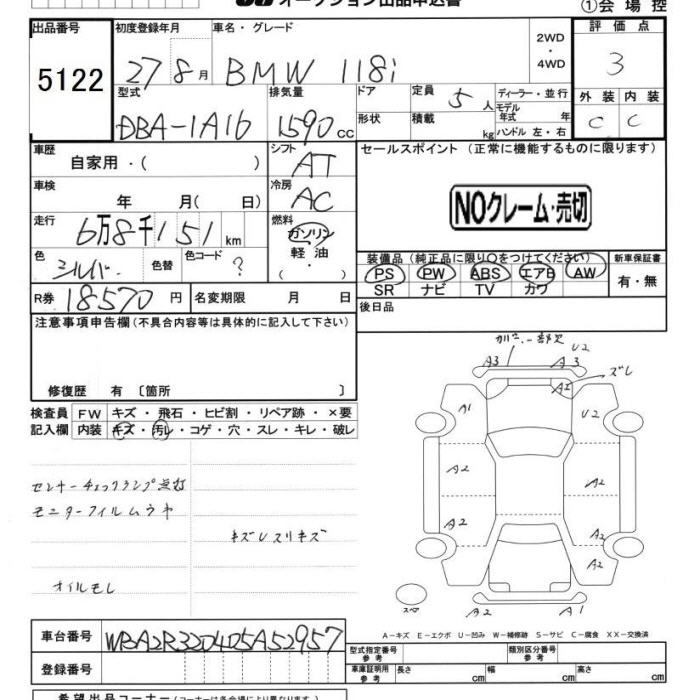 オークション出品申込書
①会場控
出品番号
初度登録年月
車名・グレード
2WD
・
4WD
評価点
5122
27 8月
BMW 118i
3
型式
排気量
ドア
定員
5人
ディーラー・並行
外装
内装
DBA-1A16
1590cc
形状
積載
kg
モデル年式
年
ハンドル 左・右
C
C
車歴
自家用・(　　)
シフト
AT
セールスポイント (正常に機能するものに限ります)
車検
年　月(　日)
冷房
AC
NOクレーム・売切
走行
6万8千151km
燃料
ガソリン
・
軽油
色
シルバー
色替
色コード
?
装備品(純正品に限り○をつけてください)
新車保証書
PS PW ABS エアB AW
SR ナビ TV カワ
有・無
R券
18570円
名変期限　月　日
後日品
注意事項申告欄(不具合内容等は具体的に記入して下さい)
修復歴 有〔箇所　　〕
検査員
記入欄
FW
キズ・飛石・ヒビ割・リペア跡・×要
内装
キズ・汚レ・コゲ・穴・スレ・キレ・破レ
センサーチェックランプ点灯
モニターフィルムウキ
キズUスリキズ
オイルモレ
U2
A3
A3
A1
ズレ
A1
U2
A2
A2
A2
A2
A2
スペア
A2
A1
A-キズ E-エクボ U-凹み W-補修跡 S-サビ C-腐食 XX-交換済
車台番号
WBA2R320405A52957
登録番号
型式指定番号
参考
類別区分番号
参考
車庫証明用
参考
長さ
cm
幅
cm
高さ
cm
希望出品コーナー(コーナーは各会場により異なります)